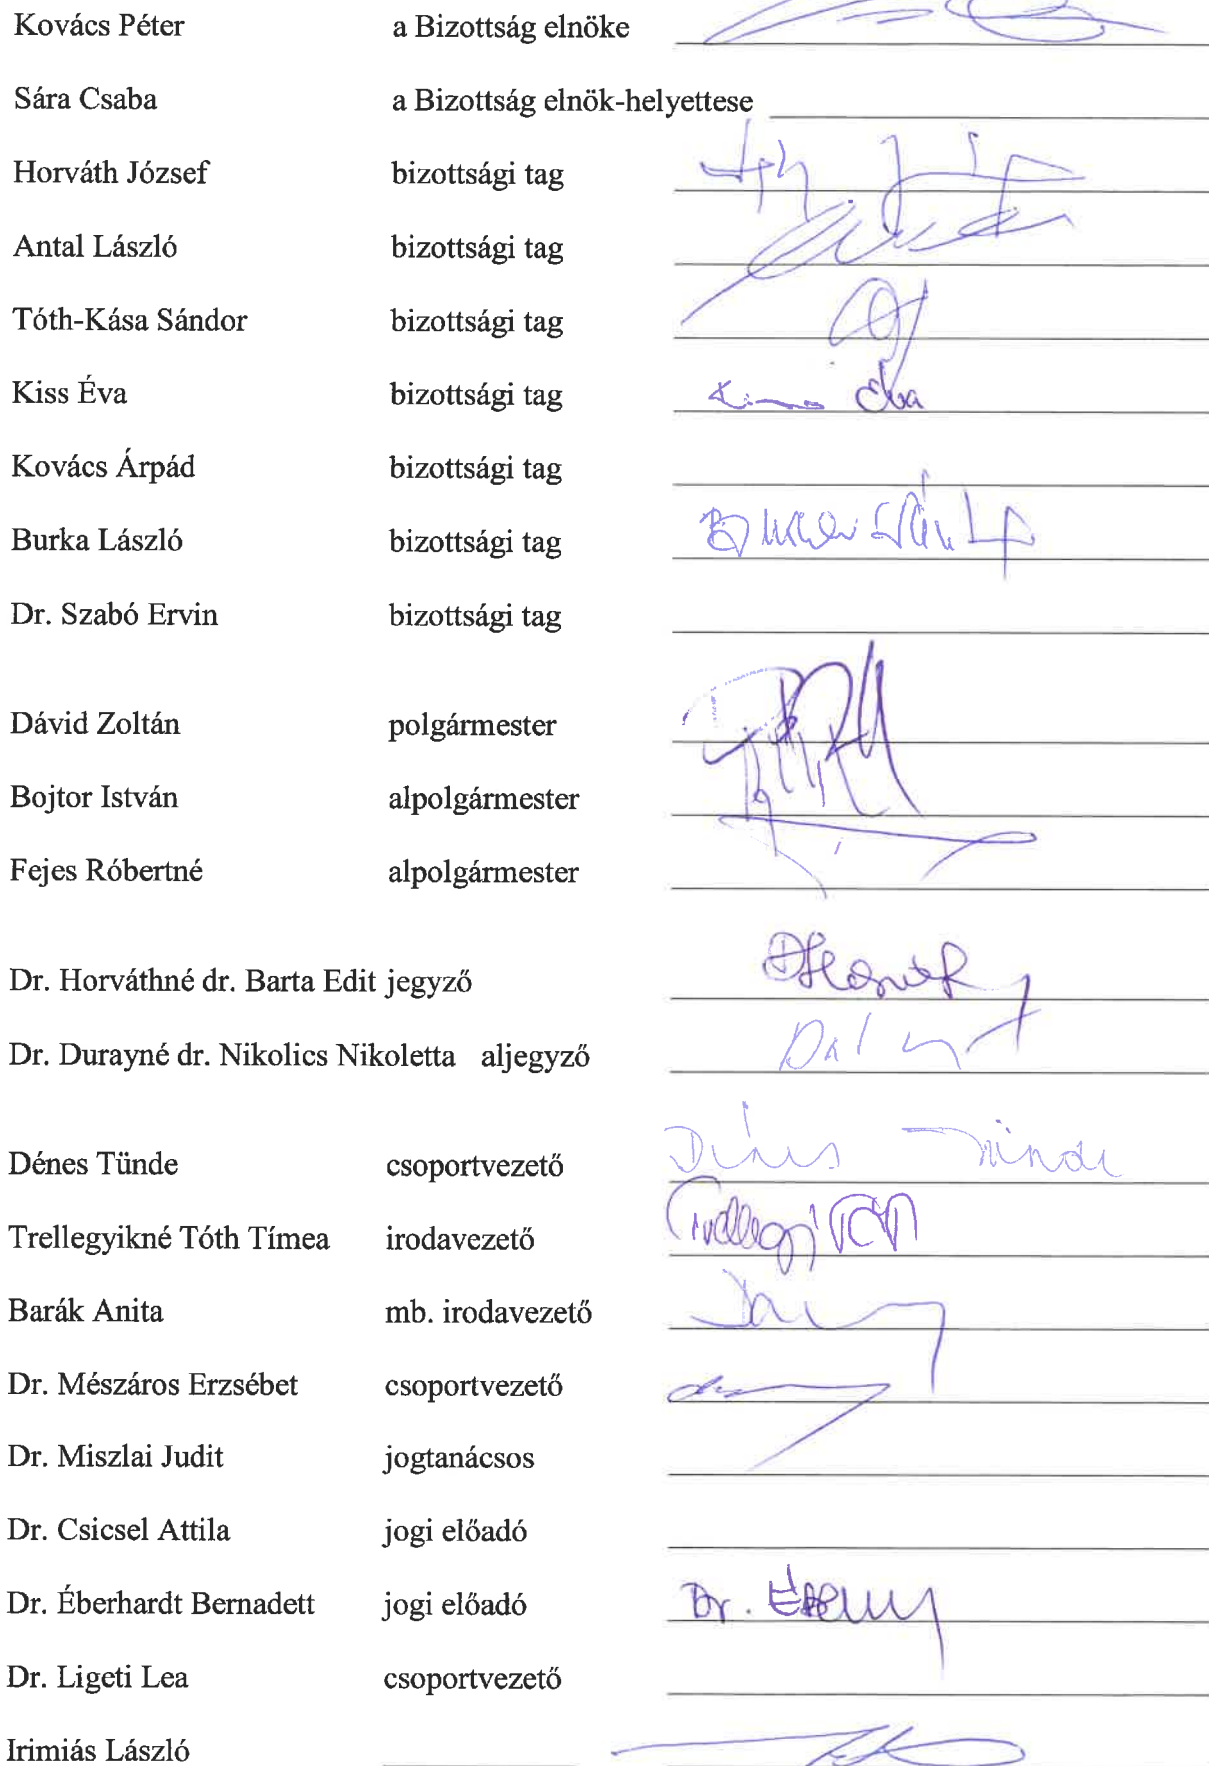 Kovács Péter a Bizottság elnöke
Sára Csaba a Bizottság elnök-helyettese
Horváth József bizottsági tag
Antal László bizottsági tag
Tóth-Kása Sándor bizottsági tag
Kiss Éva bizottsági tag Kiss Éva
Kovács Árpád bizottsági tag
Burka László bizottsági tag Burka László
Dr. Szabó Ervin bizottsági tag
Dávid Zoltán polgármester
Bojtor István alpolgármester
Fejes Róbertné alpolgármester
Dr. Horváthné dr. Barta Edit jegyző
Dr. Durayné dr. Nikolics Nikoletta aljegyző
Dénes Tünde csoportvezető Dénes Tünde
Trellegyikné Tóth Tímea irodavezető
Barák Anita mb. irodavezető
Dr. Mészáros Erzsébet csoportvezető
Dr. Miszlai Judit jogtanácsos
Dr. Csicsel Attila jogi előadó
Dr. Éberhardt Bernadett jogi előadó Dr.
Dr. Ligeti Lea csoportvezető
Irimiás László